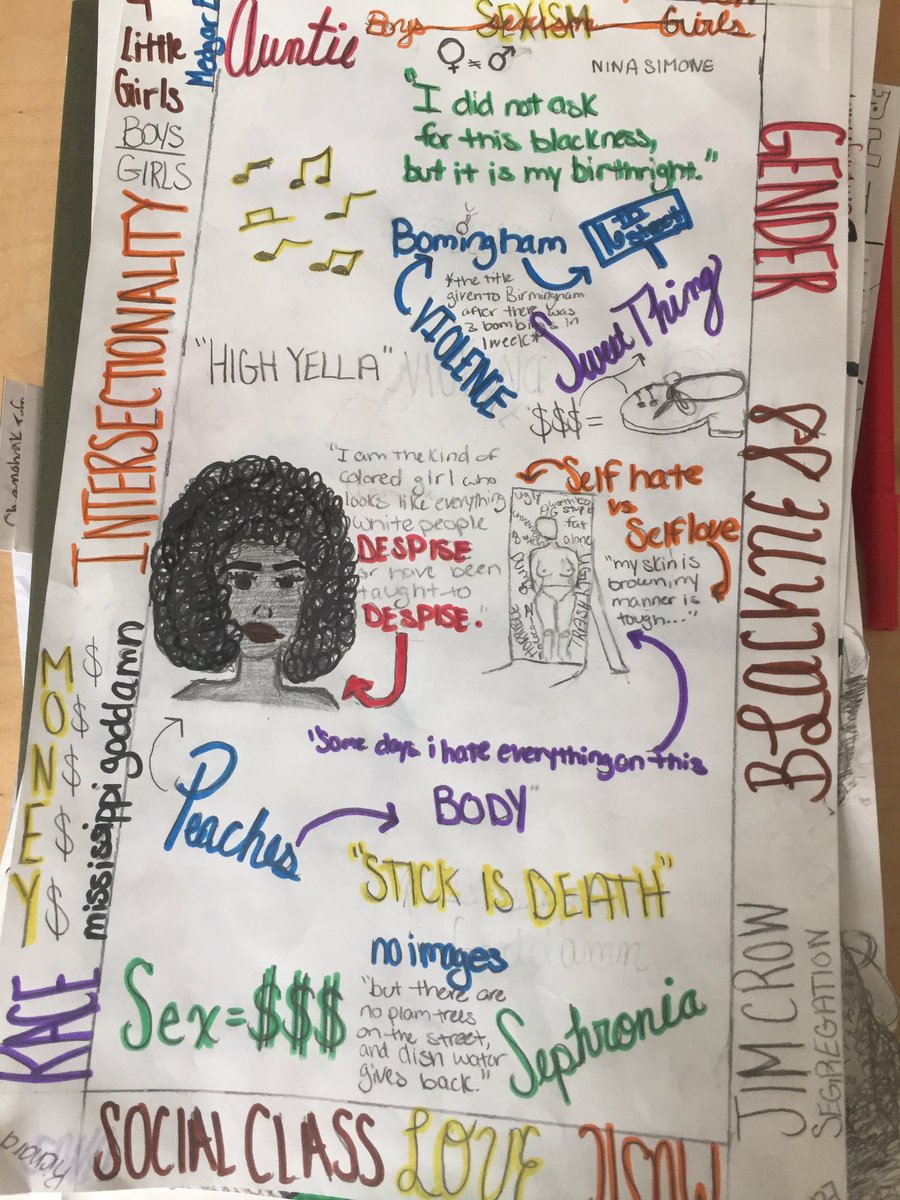 4
Little
Girls
BOYS
GIRLS
INTERSECTIONALITY
MONEY
$ $ $ $ $ $
mississippi goddamn
RACE
Auntie
Boys SEXISM Girls
♀ ≈ ♂
NINA SIMONE
"I did not ask
for this blackness,
but it is my birthright."
Bomingham
*the title
given to Birmingham
after there was
3 bombings in
1 week*
VIOLENCE
Sweet Thing
$$$=
"HIGH YELLA"
"I am the kind of
colored girl who
looks like everything
white people
DESPISE
or have been
taught to
DESPISE."
Self hate
vs
Self love
"my skin is
brown, my
manner is
tough..."
ugly
PIG
fat
alone
TRASH
"Some days i hate everything on this
BODY"
Peaches
"STICK IS DEATH"
no images
"but there are
no plam trees
on the street,
and dish water
gives back."
Sex=$$$
Sephronia
GENDER
BLACKNESS
JIM CROW
SEGREGATION
SOCIAL CLASS
LOVE
MUSIC